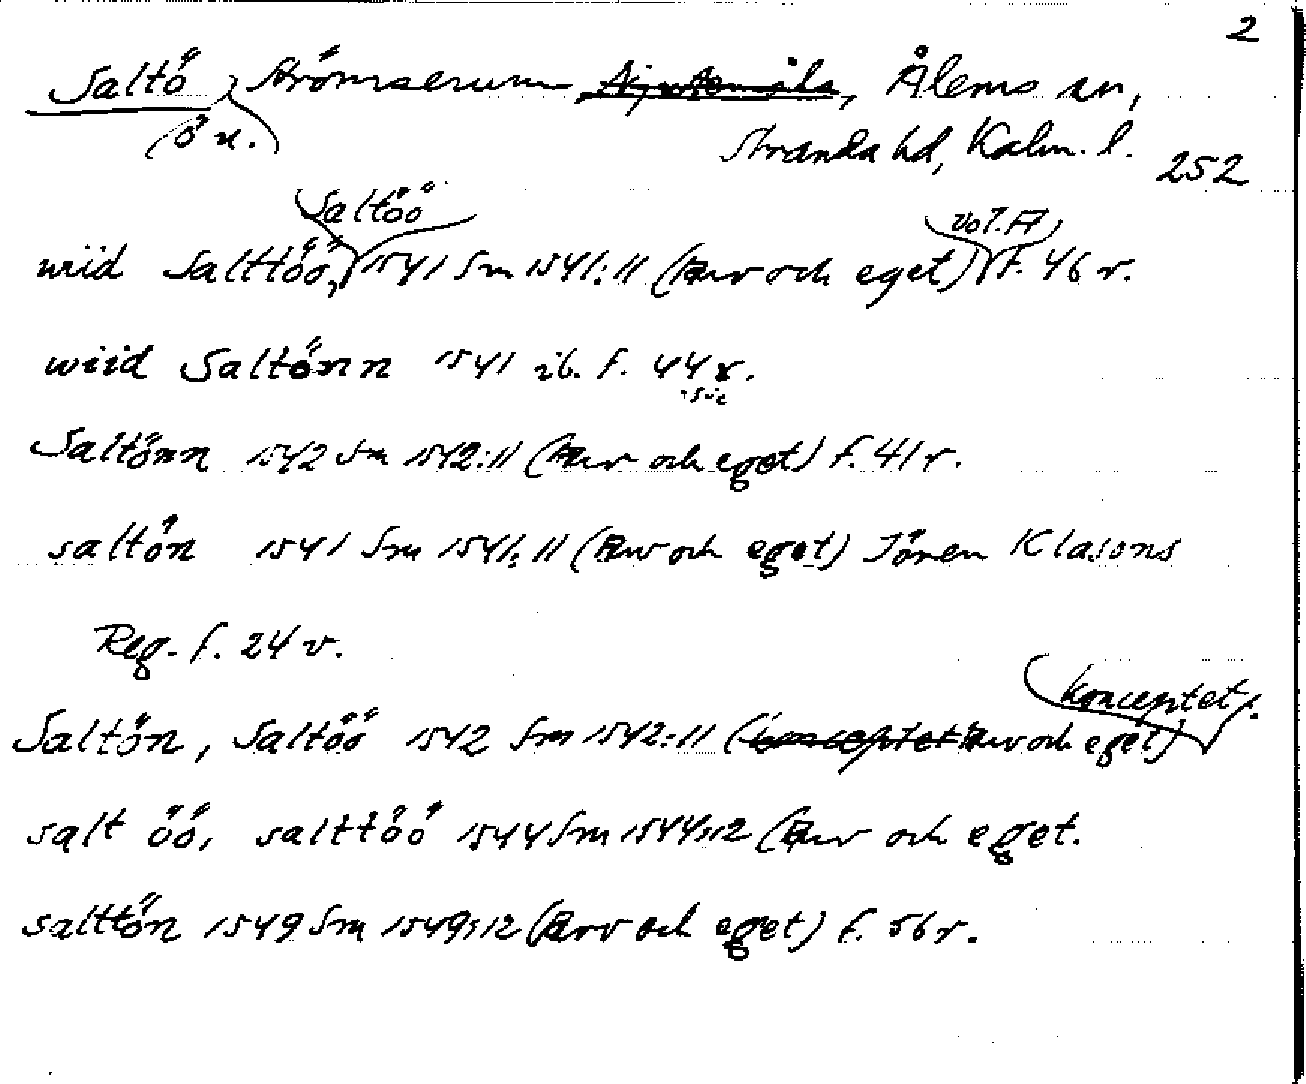 2
Saltö, Strömserum, Ålems sn,
(ö n.)
Stranda hd, Kalm. l. 252
Saltöö vol. A
wiid Salttöö, 1541 Sm 1541:11 (Arv och eget) f. 46 r.
wiid Saltönn 1541 ib. f. 44 r.
sic
Saltönn 1542 Sm 1542:11 (Arv och eget) f. 41 r.
saltön 1541 Sm 1541:11 (Arv och eget) Jönen Klasons
Reg. f. 24 v.
konceptet.
Saltön, Saltöö 1542 Sm 1542:11 (konceptet Arv och eget)
salt öö, salttöö 1544 Sm 1544:12 (Arv och eget.
salttön 1549 Sm 1549:12 (Arv och eget) f. 56 r.